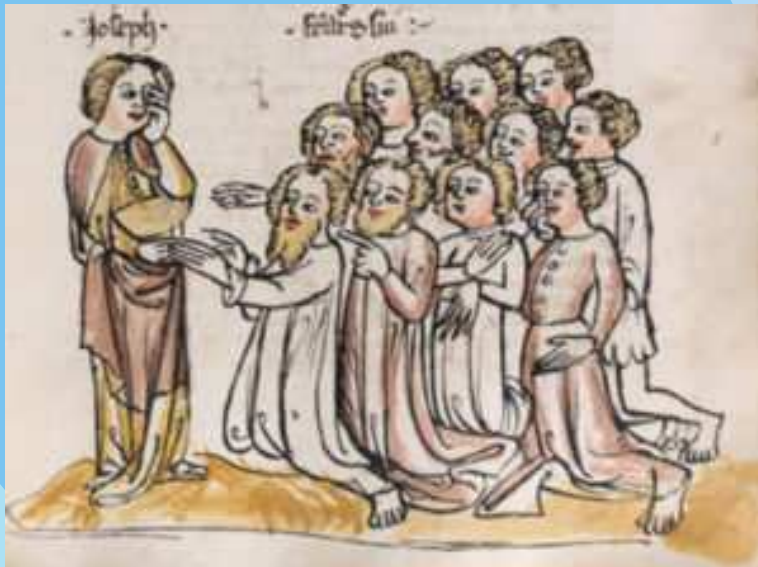 · Joseph · · fratres sui :~